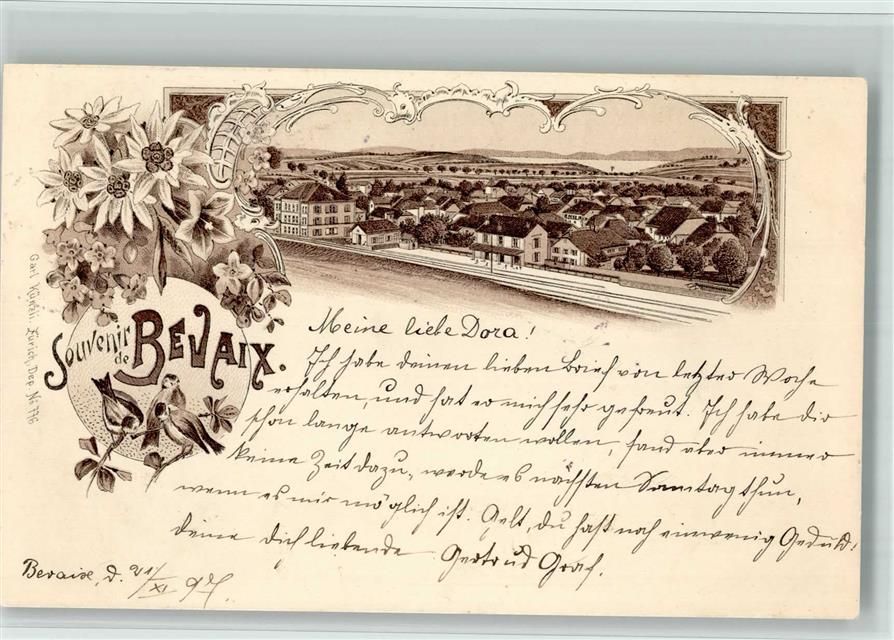 Souvenir
de
BEVAIX.
Carl Künzli, Zürich, Dep. No 776
Meine liebe Dora!
Ich habe deinen lieben Brief von letzter Woche
erhalten, und hat er mich sehr gefreut. Ich habe dir
schon lange antworten wollen, fand aber immer
keine Zeit dazu, werde es nächsten Sonntag thun,
wenn es mir möglich ist. Gelt, du hast noch ein wenig Geduld!
deine dich liebende Gertrud Graf.
Bevaix, d. 21/XI 97.